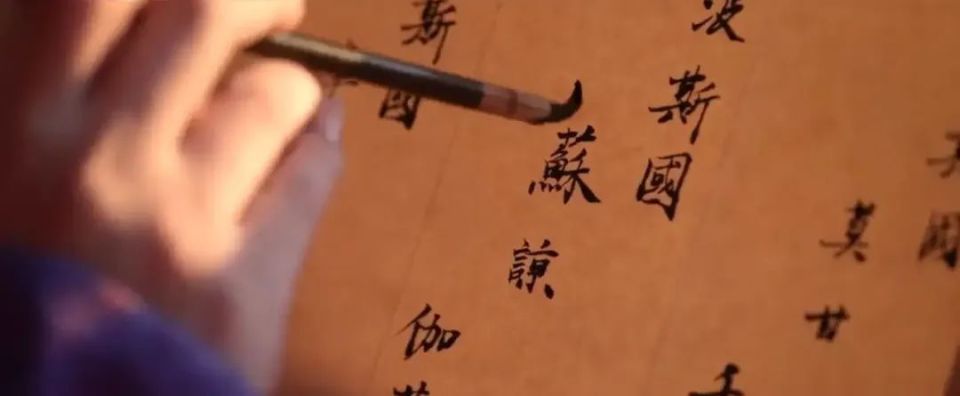 國
莫甘
波斯國
蘇諒
伽
斯國